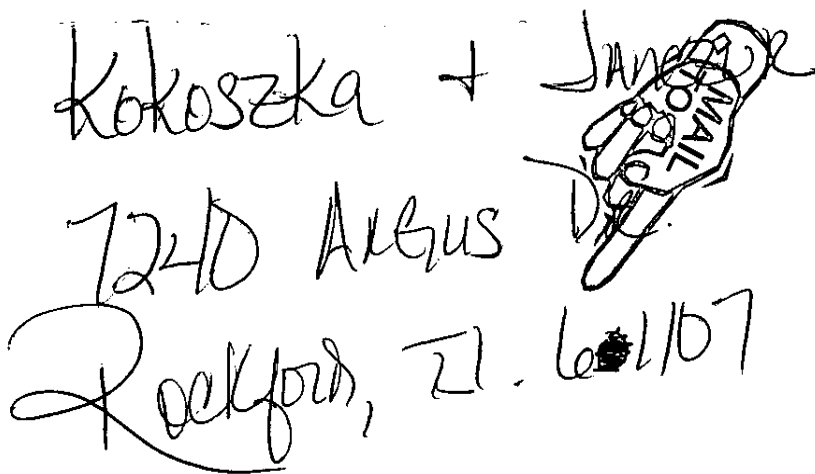 Kokoszka +
MAIL TO
7240 Argus Dr.
Rockford, Il. 61107